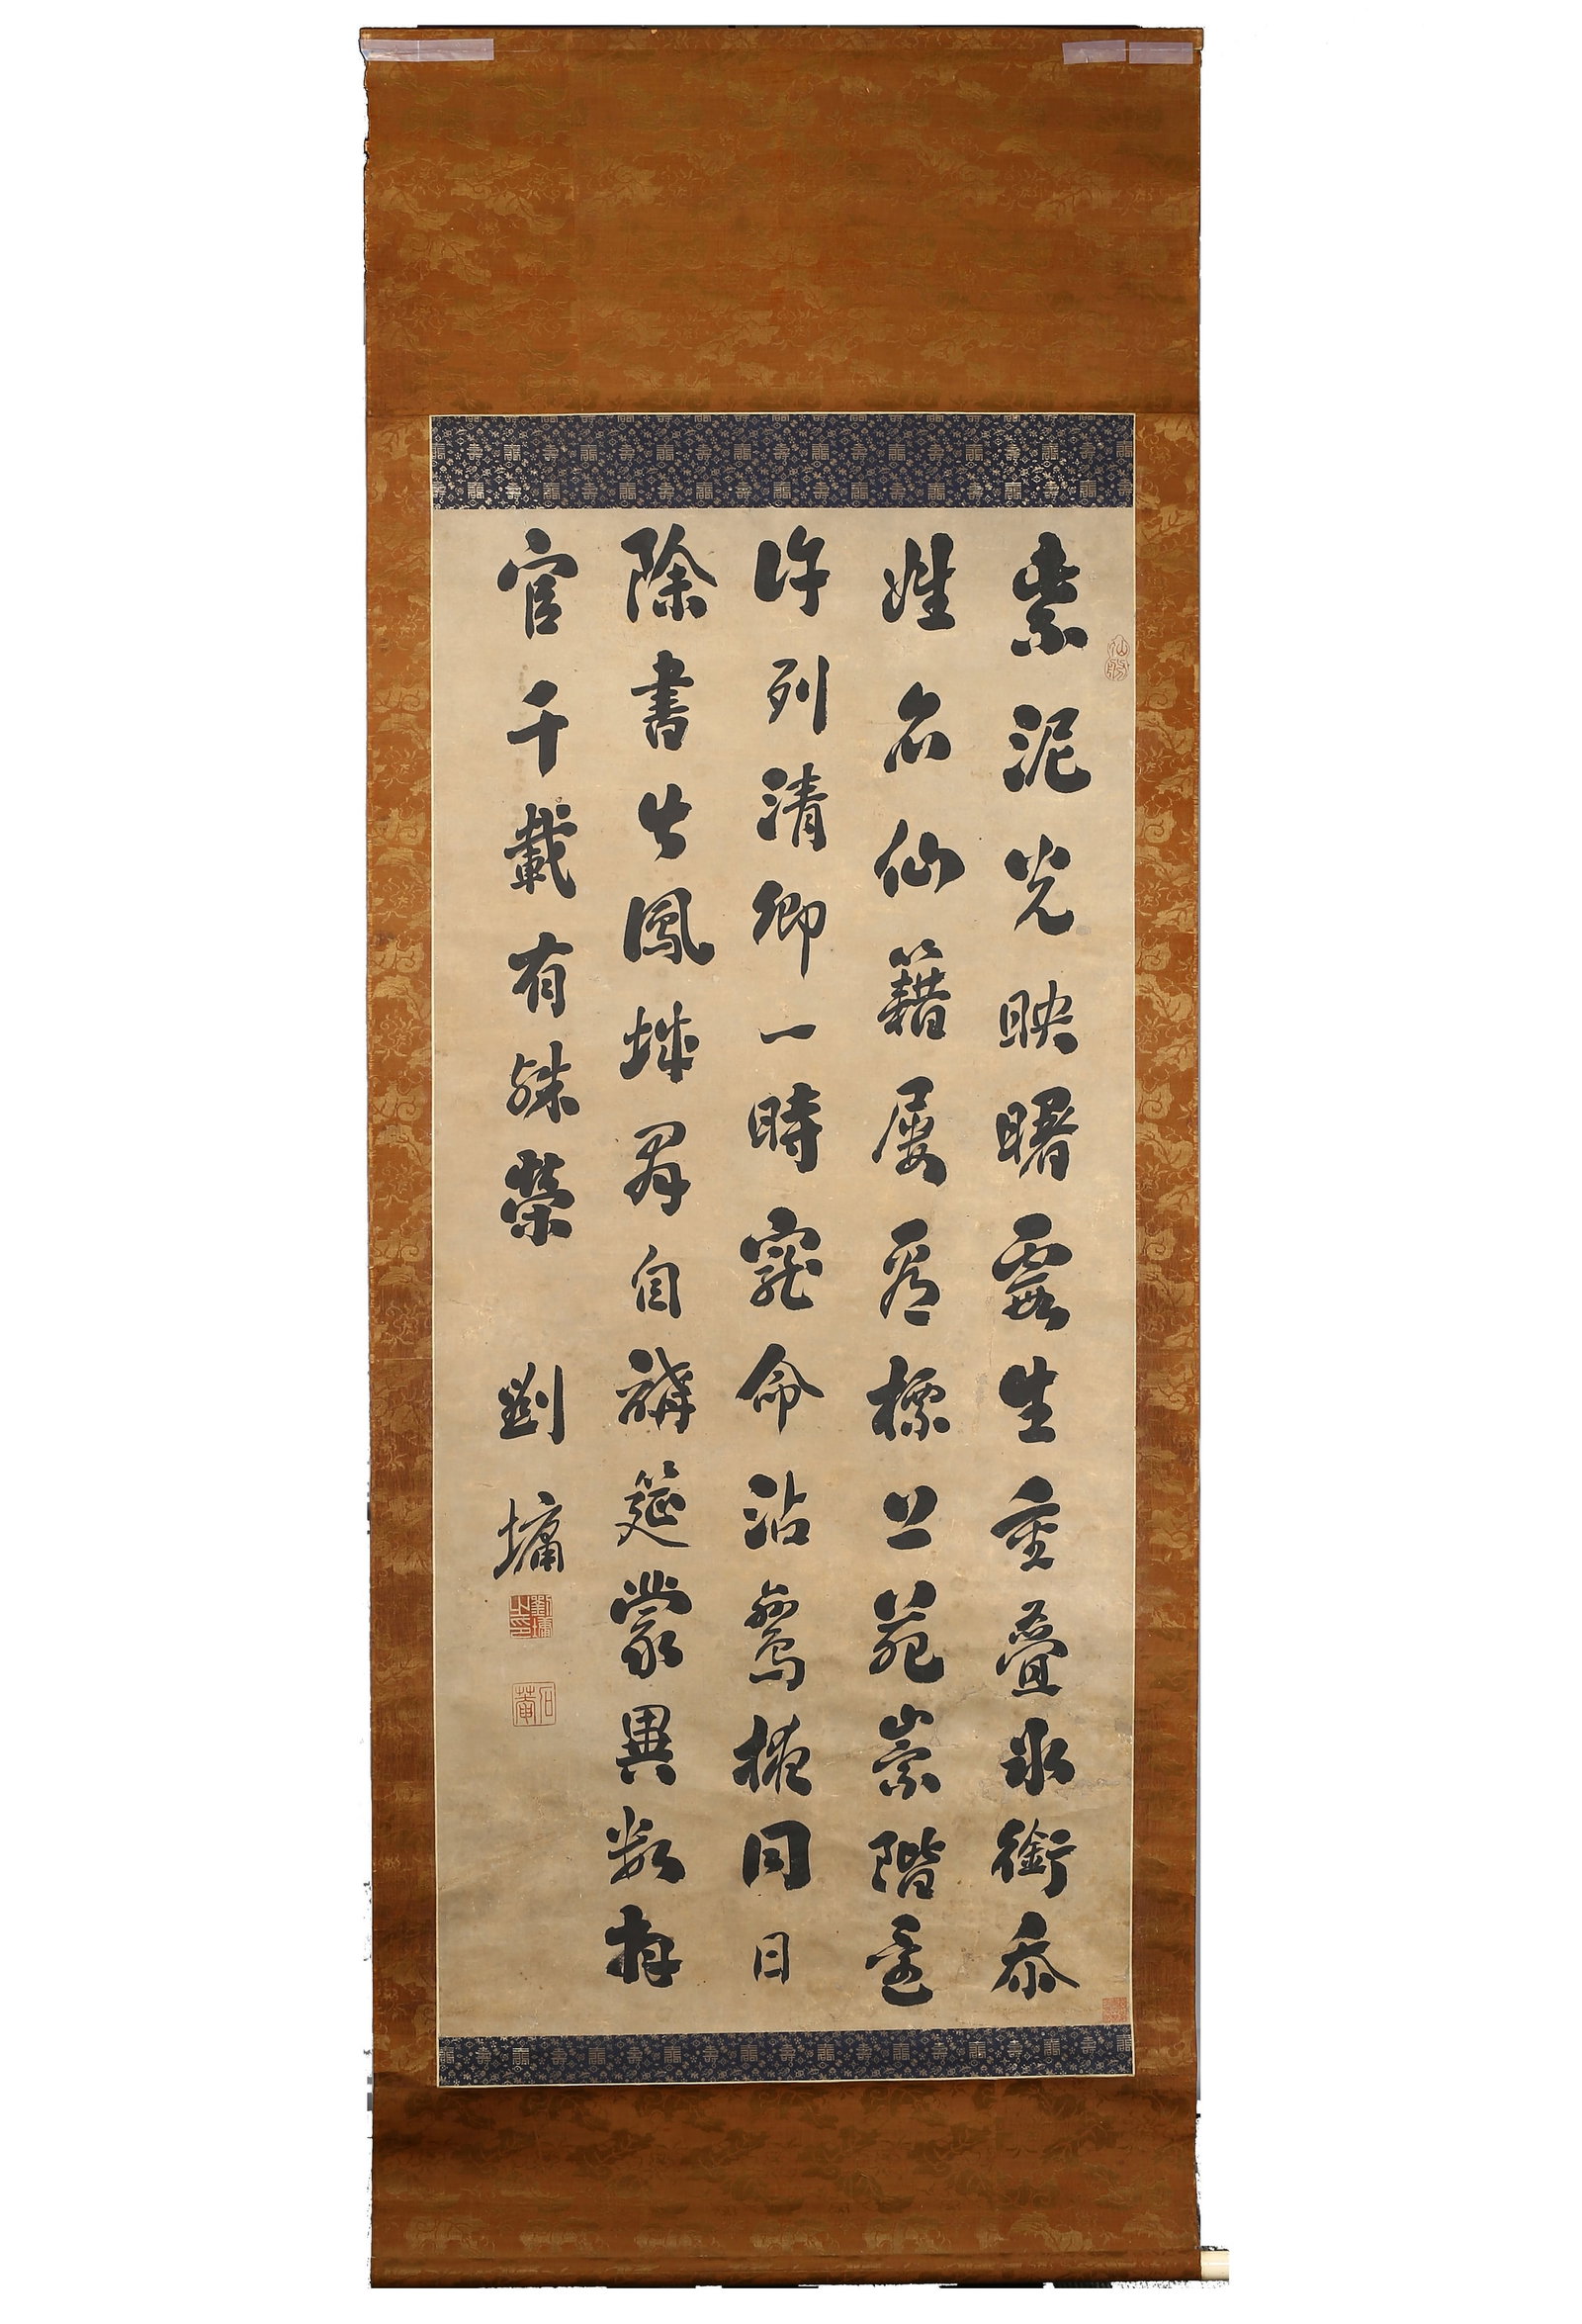 紫泥光映曙霞生重疊冰銜忝
姓名仙籍屢看標上苑崇階還
許列清卿一時寵命沾鴛掖同日
除書出鳳城羣自講筵蒙異數
官千載有殊榮
劉墉
劉墉之印
石菴